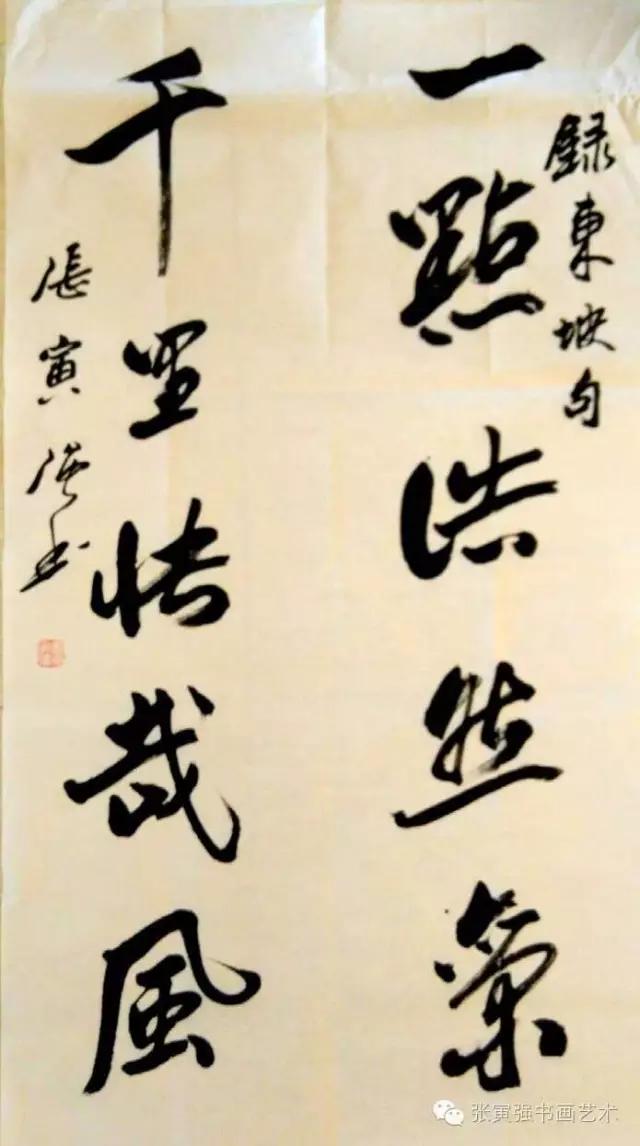 録東坡句
一點浩然氣
千里快哉風
張寅強書
张寅强书画艺术